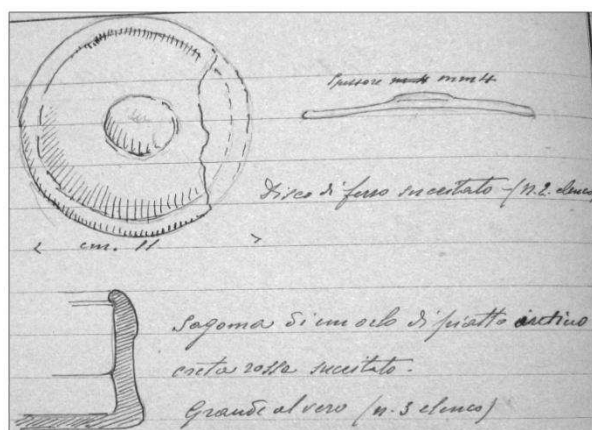 Spessore mm 4
Disco di ferro succitato - (n. 2 elenco)
cm. 11
Sagoma di un orlo di piatto aretino
creta rossa succitato.
Grande al vero (n. 3 elenco)